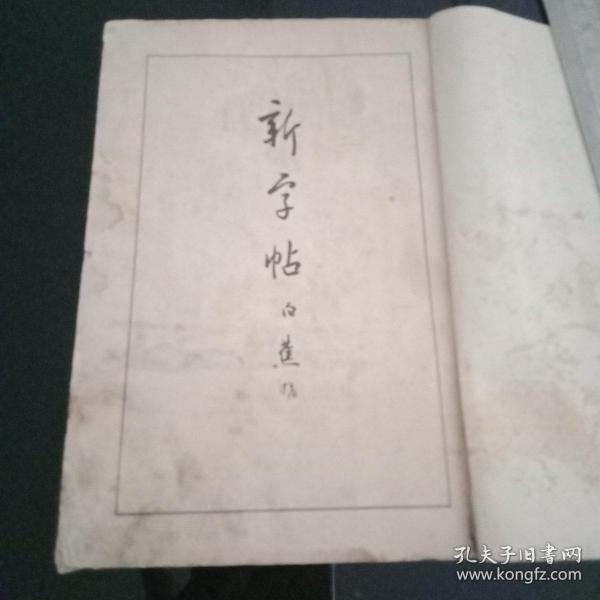 新字帖
白蕉
孔夫子旧書网
www.kongfz.com